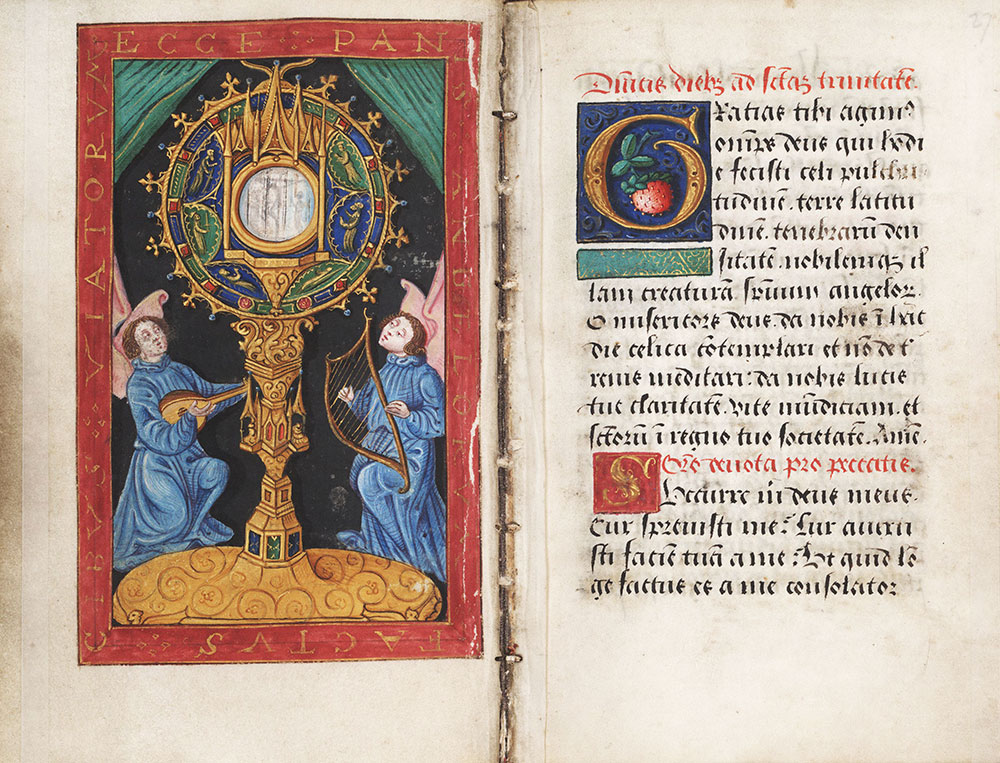 ECCE PAN
IS ANGELORV
FACTVS
CIBVS VIATORVM
27
Dnicis dieb3 ad sctaz trinitate.
GRatias tibi agim9
omps deus qui hodi
e fecisti celi pulchri
tudinem. terre latitu
dinem. tenebrarum den
sitatem. nobilemq3 il
lam creaturā spūum angelor
O misericors deus. da nobis ī hac
die celica cōtemplari et nō ter
rena meditari: da nobis lucis
tue claritatem. vite mūdiciam. et
sctorum ī regno tuo societatem. Amen.
Oro deuota pro peccatis.
SUccurre m deus meus.
Cur spreuisti me? Cur auerti
sti faciem tuā a me? Et quid lō
ge factus es a me consolator